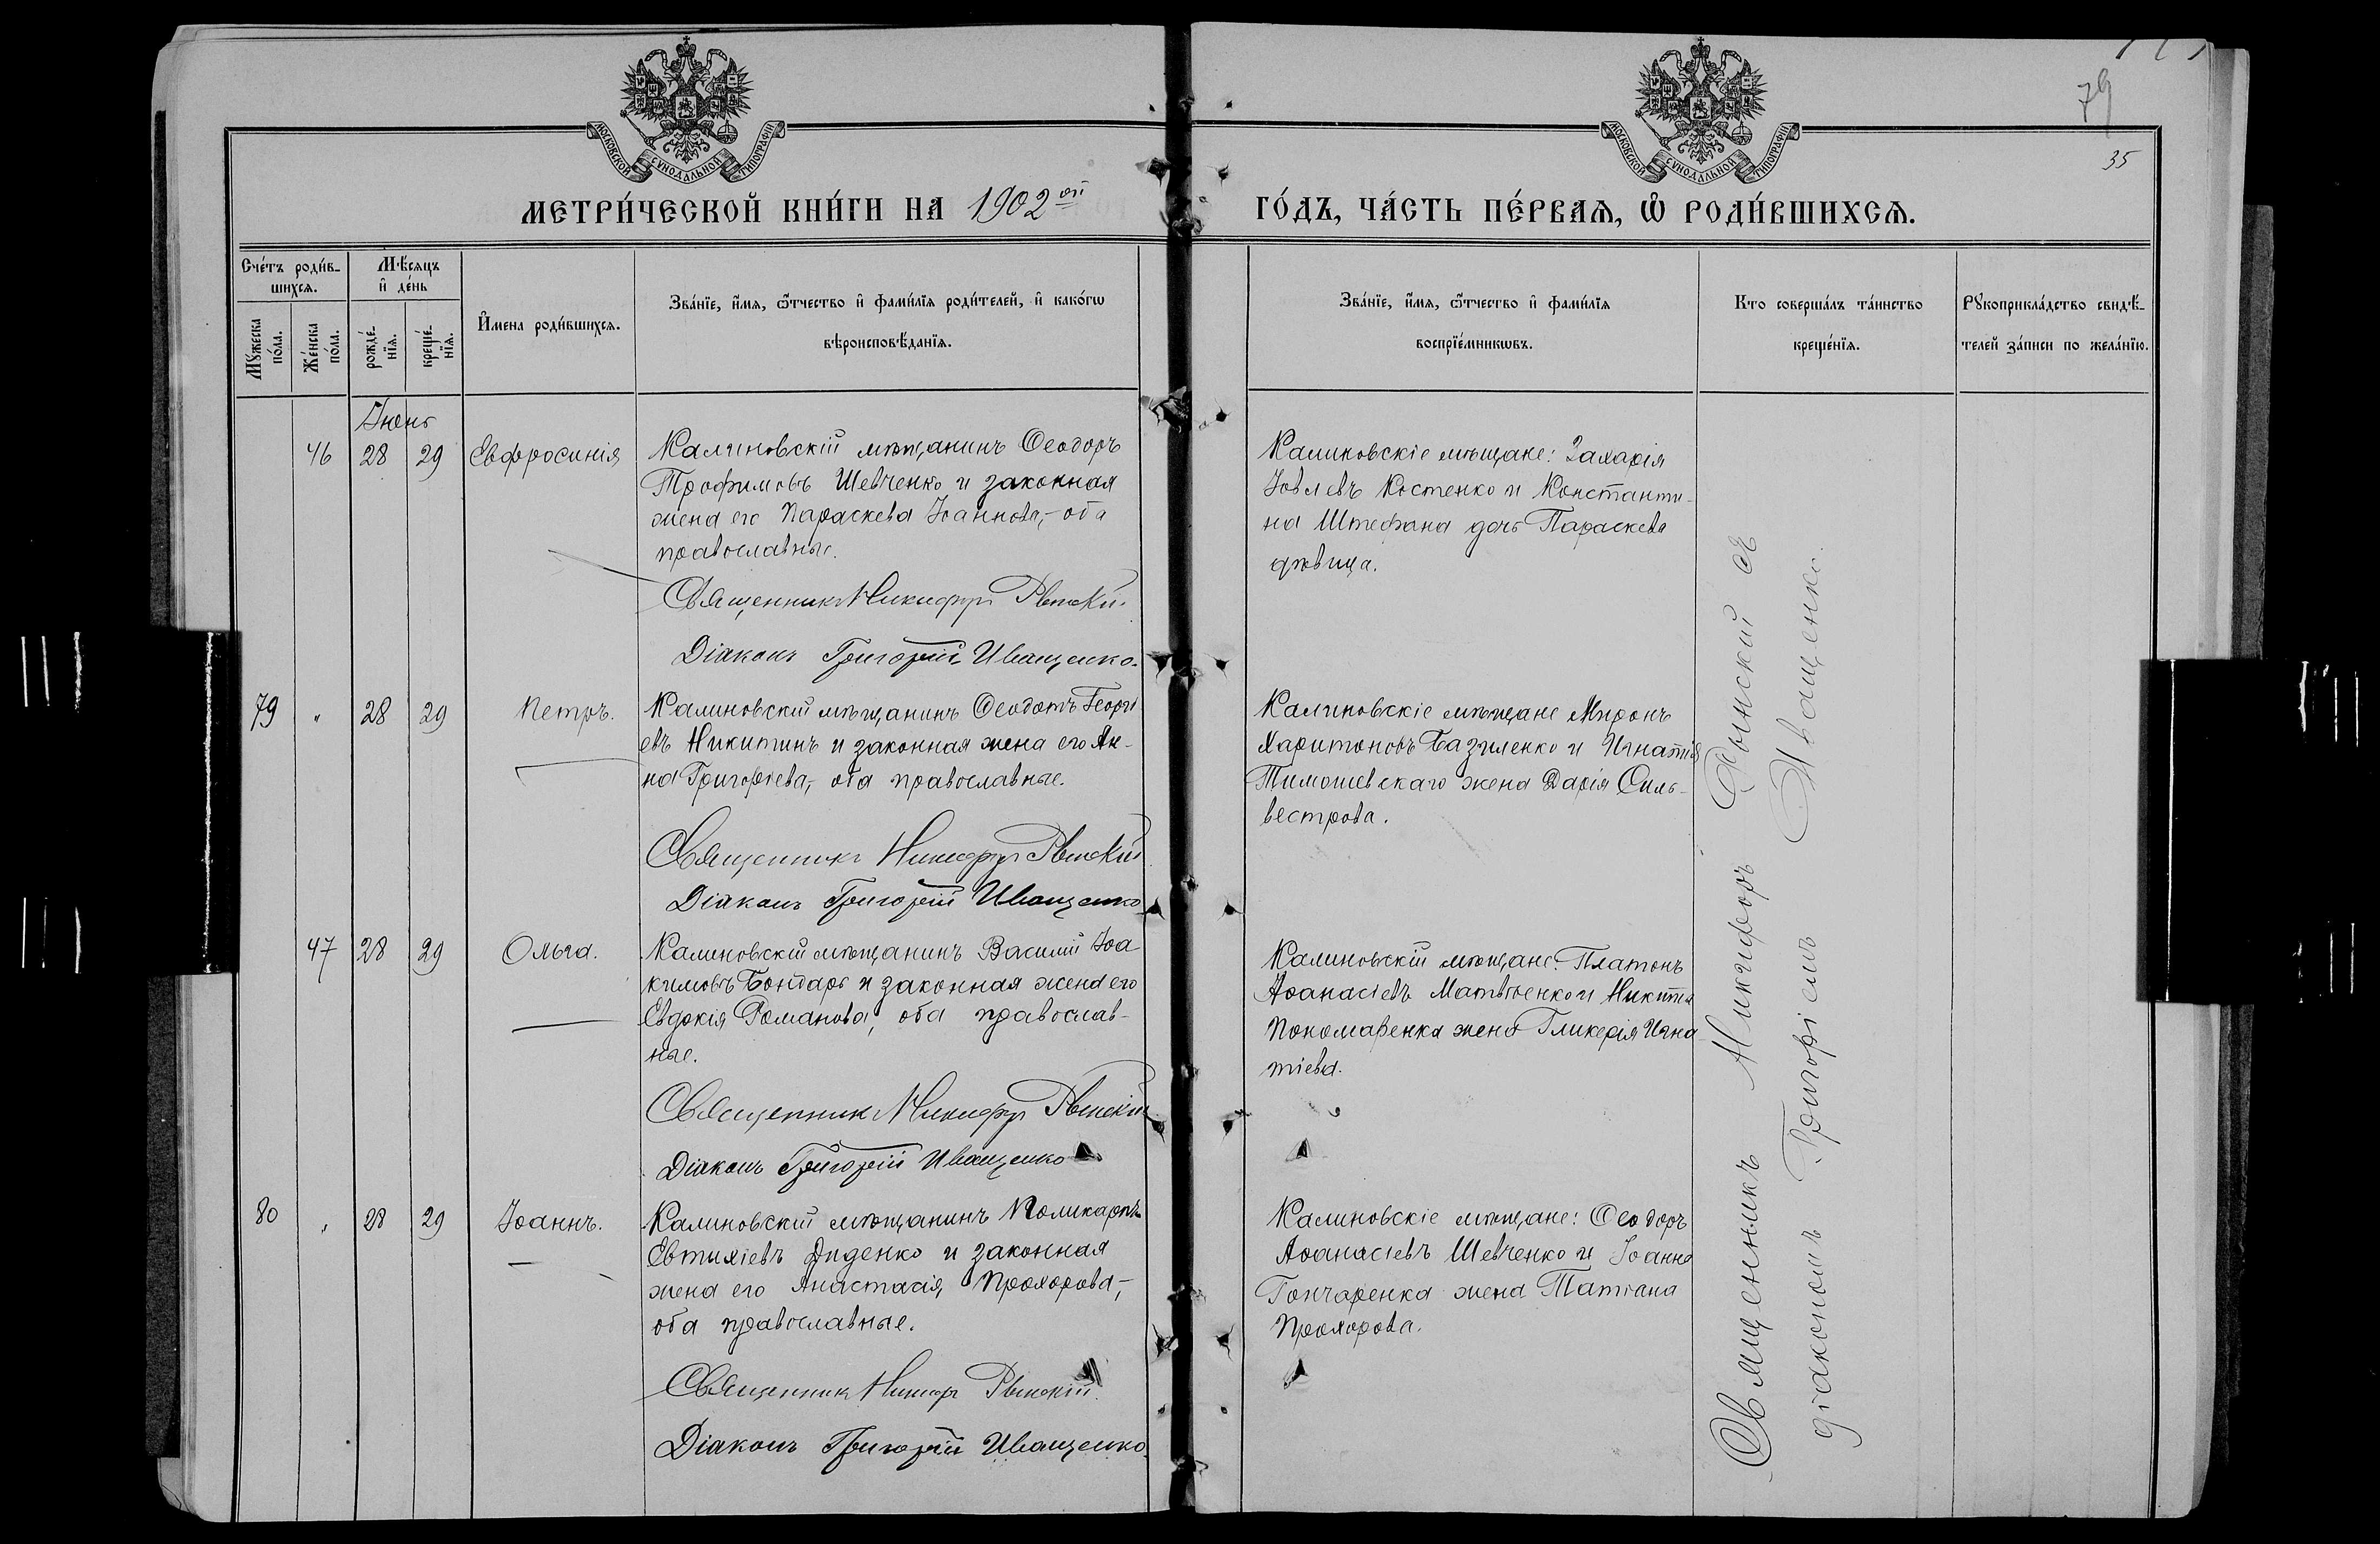 79
35
МОСКОВСКОЙ СѴНОДАЛЬНОЙ ТИПОГРАФІИ
МОСКОВСКОЙ СѴНОДАЛЬНОЙ ТИПОГРАФІИ
МЕТРИ́ЧЕСКОЙ КНИ́ГИ НА 1902 ой
ГО́ДЪ, ЧА́СТЬ ПЕ́РВАѦ, Ѡ҆ РОДИ́ВШИХСѦ.
Сче́тъ роди́в-
шихсѧ.
Мꙋ́жеска
по́ла.
Же́нска
по́ла.
Мѣ́сѧцъ
и҆ де́нь
рожде́-
нїѧ.
креще́-
нїѧ.
И҆мена роди́вшихсѧ.
Зва́нїе, и҆́мѧ, ѻ҆́тчество и҆ фами́лїѧ роди́телей, и҆ како́гѡ
вѣроисповѣ́данїѧ.
Зва́нїе, и҆́мѧ, ѻ҆́тчество и҆ фами́лїѧ
воспрїе́мникѡвъ.
Кто соверша́лъ та́инство
креще́нїѧ.
Рꙋкоприкла́дство свидѣ́-
телей за́писи по жела́нїю.
Іюнь
46 28 29 Евфросинія
Калиновскій мѣщанинъ Ѳеодоръ
Трофимовъ Шевченко и законная
жена его Параскева Іоаннова,- оба
православные.
Священникъ Никифоръ Рынскій
Діаконъ Григорій Иващенко.
Калиновскіе мѣщане: Захарія
Іовлевъ Костенко и Константи-
на Штефана дочь Параскева
дѣвица.
79 " 28 29 Петръ.
Калиновскій мѣщанинъ Ѳеодотъ Георгі
евъ Никитинъ и законная жена его Ан-
на Григоріева,- оба православные.
Священникъ Никифоръ Рынскій
Діаконъ Григорій Иващенко
Калиновскіе мѣщане Миронъ
Харитоновъ Базиленко и Игнатія
Тимошевскаго жена Дарія Силь-
вестрова.
47 28 29 Ольга.
Калиновскій мѣщанинъ Василій Іоа
кимовъ Бондарь и законная жена его
Евдокія Романова, оба православ-
ные.
Священникъ Никифоръ Рынскій
Діаконъ Григорій Иващенко
Калиновскій мѣщане: Платонъ
Аѳанасіевъ Матвѣенко и Никиты
Пономаренка жена Гликерія Игна
тіева.
80 " 28 29 Іоаннъ.
Калиновскій мѣщанинъ Поликарпъ
Евтихіевъ Диденко и законная
жена его Анастасія Прохорова,-
оба православные.
Священникъ Никифоръ Рынскій.
Діаконъ Григорій Иващенко.
Калиновскіе мѣщане: Ѳеодоръ
Аѳанасіевъ Шевченко и Іоанна
Гончаренка жена Татіана
Прохорова.
Священникъ Никифоръ Рынскій съ
діакономъ Григоріемъ Иващенко.